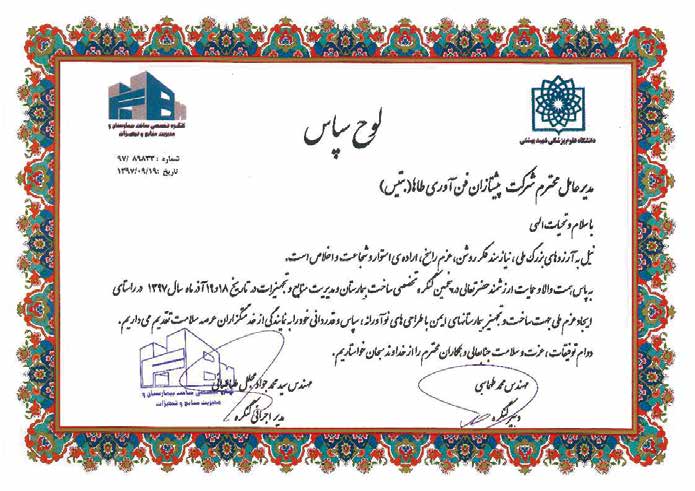 کنگره تخصصی ساخت بیمارستان و
مدیریت منابع و تجهیزات
شماره : ۸۹۸۳۳ /۹۷
تاریخ :۱۳۹۷/۰۹/۱۹
دانشگاه علوم پزشکی شهید بهشتی
لوح سپاس
مدیرعامل محترم شرکت پیشتازان فن آوری طاها(بتیس)
با سلام و تحیات الهی
نیل به آرزوهای بزرگ ملی، نیازمند فکر روشن، عزم راسخ، اراده ی استوار و شجاعت و اخلاص است.
به پاس همت والا و حمایت ارزشمند حضرتعالی در پنجمین کنگره تخصصی ساخت بیمارستان و مدیریت منابع و تجهیزات در تاریخ ۱۸و۱۹ آذر ماه سال ۱۳۹۷ در راستای
ایجاد عزم ملی جهت ساخت و تجهیز بیمارستانهای ایمن با طراحی های نوآورانه، سپاس و قدردانی خود را به نمایندگی از خدمتگزاران عرصه سلامت تقدیم می داریم.
دوام توفیقات، عزت و سلامت جنابعالی و همکاران محترم را از خداوند سبحان خواستاریم.
مهندس محمد طهماسبی
دبیر کنگره
مهندس سید محمد جواد
مدیر اجرائی کنگره
کنگره تخصصی ساخت بیمارستان و
مدیریت منابع و تجهیزات